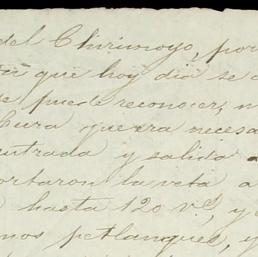 del Chirimoyo, por
que hoy dia se
se puede reconocer,
Cura guerra necesa
entrada y salida
ortaron la veta a
hasta 120 vs, y
mos petlanques, y